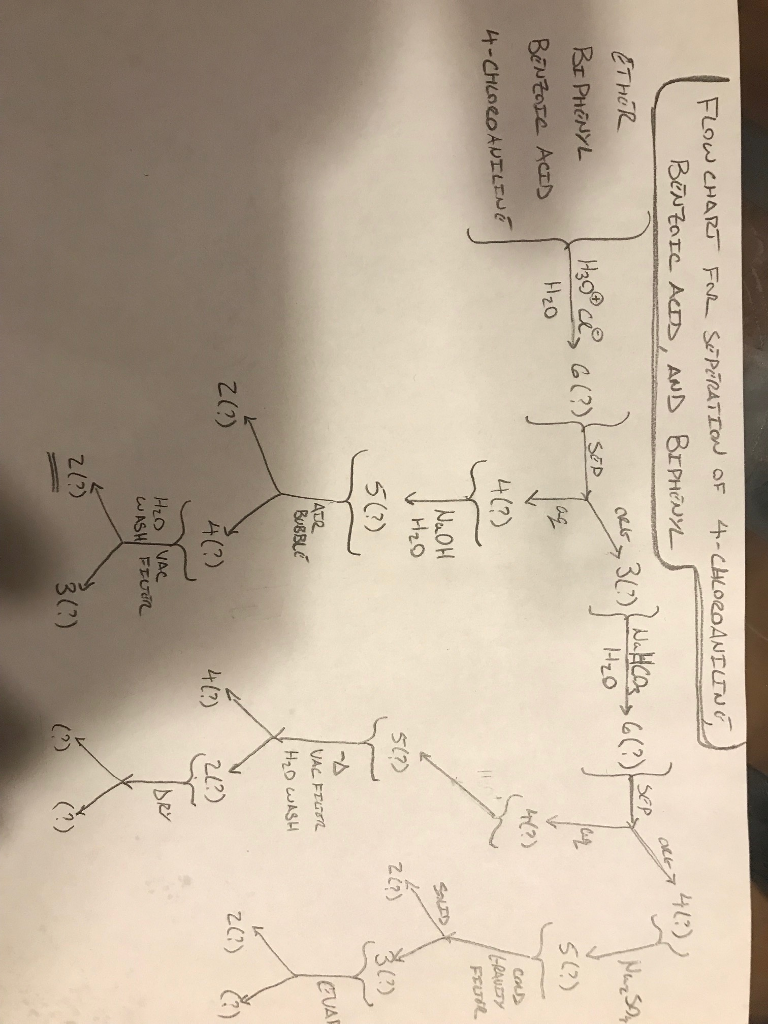 FLOW CHART FOR SEPERATION OF 4-CHLOROANILINE,
BENZOIC ACID, AND BIPHENYL
ETHER
BIPHENYL
BENZOIC ACID
4-CHLOROANILINE
H₃O⊕ Cl⊖
H₂O
6(?)
SEP
ORG
3(?)
NaHCO₃
H₂O
6(?)
SEP
ORG
4(?)
Na₂SO₄
5(?)
COLD
GRAVITY
FILTER
SOLID
2(?)
3(?)
EVAP
2(?)
(?)
aq
4(?)
NaOH
H₂O
5(?)
AIR
BUBBLE
2(?)
4(?)
VAC
FILTER
H₂O
WASH
2(?)
3(?)
aq
4(?)
5(?)
-Δ
VAC FILTER
H₂O WASH
4(?)
2(?)
DRY
(?)
(?)